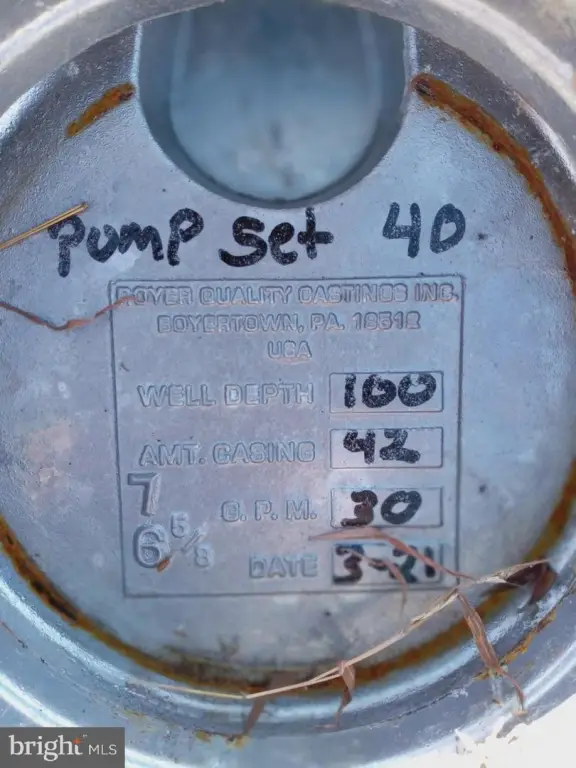 Pump Set 40
ROYER QUALITY CASTINGS INC.
BOYERTOWN, PA. 19512
USA
WELL DEPTH 100
AMT. CASING 42
7 G. P. M. 30
6 5/8
DATE 3-21
bright MLS